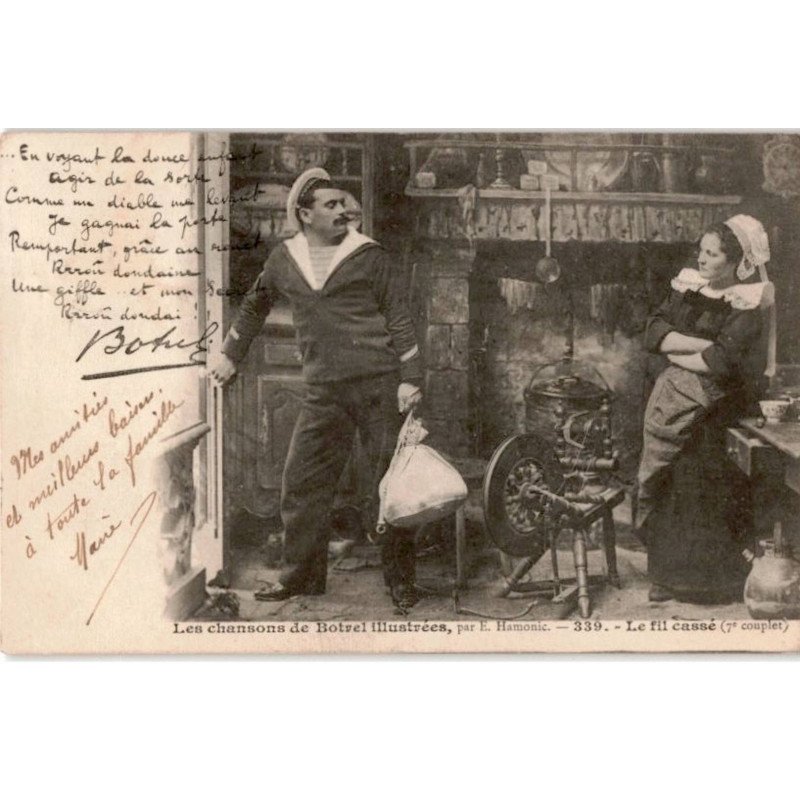 ...En voyant la douce enfant
agir de la sorte
Comme un diable me levant
Je gagnai la porte
Remportant, grâce au rouet
Rroû doudaine
Une giffle... et mon
Rroû doudai !
Botrel
Mes amitiés
et meilleurs baisers
à toute la famille
Marie
Les chansons de Botrel illustrées, par E. Hamonic. — 339. - Le fil cassé (7e couplet)